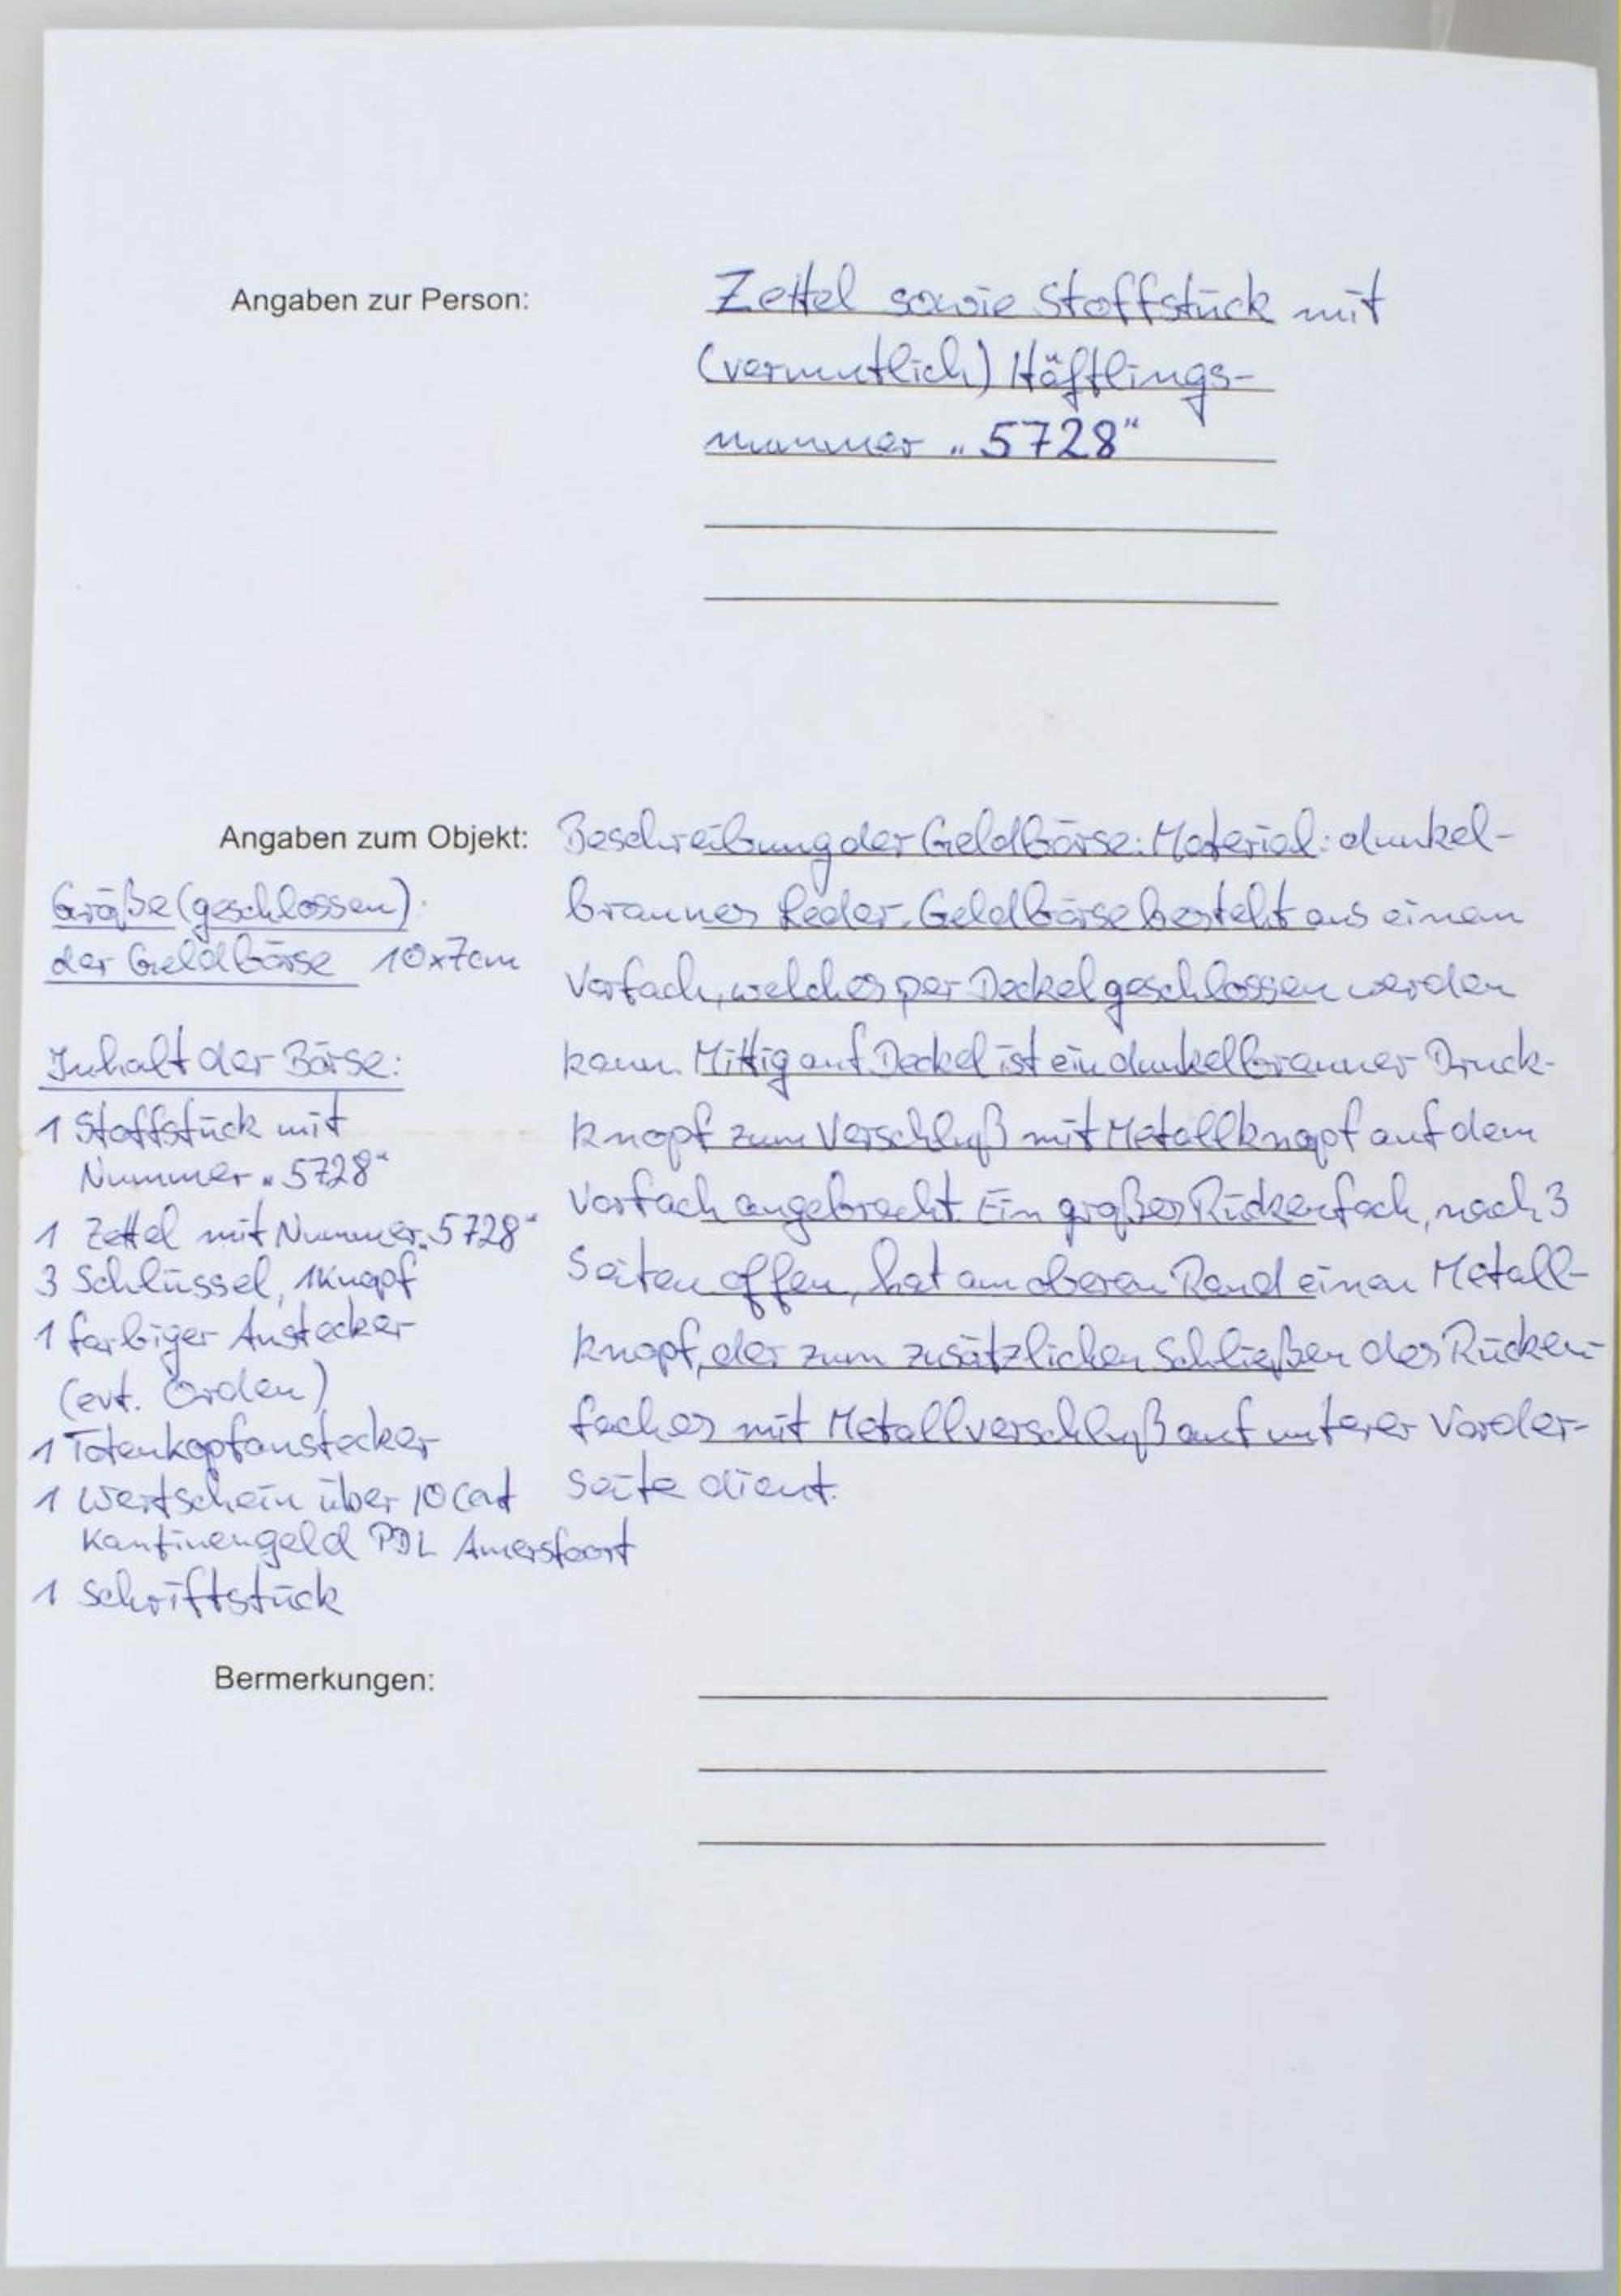 Angaben zur Person:
Zettel sowie Stoffstück mit
(vermutlich) Häftlings-
nummer „5728"
Angaben zum Objekt:
Beschreibung der Geldbörse: Material: dunkel-
braunes Leder. Geldbörse besteht aus einem
Vorfach, welches per Deckel geschlossen werden
kann. Mittig auf Deckel ist ein dunkelbrauner Druck-
knopf zum Verschluß mit Metallknopf auf dem
Vorfach angebracht. Ein großes Rückenfach, nach 3
Seiten offen, hat am oberen Rand einen Metall-
knopf, der zum zusätzlichen Schließen des Rücken-
faches mit Metallverschluß auf unterer Vorder-
seite dient.
Größe (geschlossen)
der Geldbörse 10x7cm
Inhalt der Börse:
1 Stoffstück mit
Nummer „5728"
1 Zettel mit Nummer „5728"
3 Schlüssel, 1 Knopf
1 farbiger Anstecker
(evt. Orden)
1 Totenkopfanstecker
1 Wertschein über 10 Cent
Kantinengeld PDL Amersfoort
1 Schriftstück
Bermerkungen: